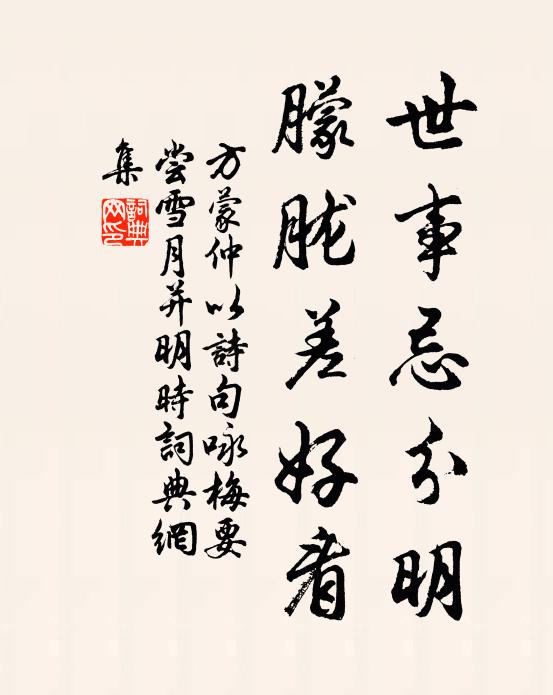 世事忌分明
朦胧差好看
方蒙仲以詩句咏梅要
尝雪月并明時詞典網
集
詞典
网印